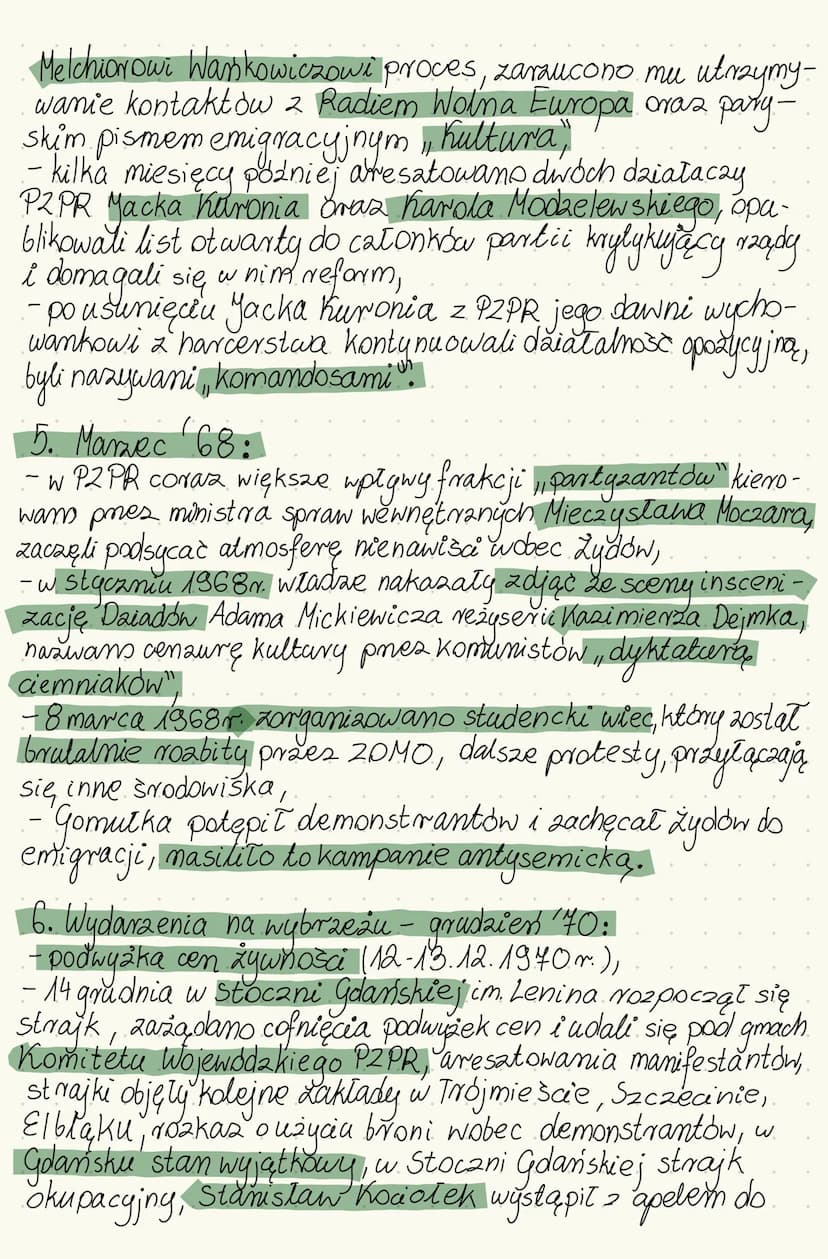 Melchiorowi Wańkowiczowi proces, zarzucono mu utrzymy-
wanie kontaktów z Radiem Wolna Europa oraz pary-
skim pismem emigracyjnym „Kultura",
- kilka miesięcy później aresztowano dwóch działaczy
PZPR Jacka Kuronia oraz Karola Modzelewskiego, opu-
blikowali list otwarty do członków partii krytykujący rządy
i domagali się w nim reform,
- po usunięciu Jacka Kuronia z PZPR jego dawni wycho-
wankowi z harcerstwa kontynuowali działalność opozycyjną,
byli nazywani „komandosami".
5. Marzec '68:
- w PZPR coraz większe wpływy frakcji „partyzantów" kiero-
wano przez ministra spraw wewnętrznych Mieczysława Moczara,
zaczęli podsycać atmosferę nienawiści wobec Żydów,
- w styczniu 1968r. władze nakazały zdjąć ze sceny insceni-
zację Dziadów Adama Mickiewicza reżyserii Kazimierza Dejmka,
nazwano cenzurę kultury przez komunistów „dyktaturą
ciemniaków",
- 8 marca 1968r. zorganizowano studencki wiec, który został
brutalnie rozbity przez ZOMO, dalsze protesty, przyłączają
się inne środowiska,
- Gomułka potępił demonstrantów i zachęcał Żydów do
emigracji, nasiliło to kampanie antysemicką.
6. Wydarzenia na wybrzeżu - grudzień '70:
- podwyżka cen żywności (12-13.12.1970r.),
- 14 grudnia w Stoczni Gdańskiej im. Lenina rozpoczął się
strajk, zażądano cofnięcia podwyżek cen i udali się pod gmach
Komitetu Wojewódzkiego PZPR, aresztowania manifestantów,
strajki objęły kolejne zakłady w Trójmieście, Szczecinie,
Elbłąku, rozkaz o użyciu broni wobec demonstrantów, w
Gdańsku stan wyjątkowy, w Stoczni Gdańskiej strajk
okupacyjny, Stanisław Kociołek wystąpił z apelem do